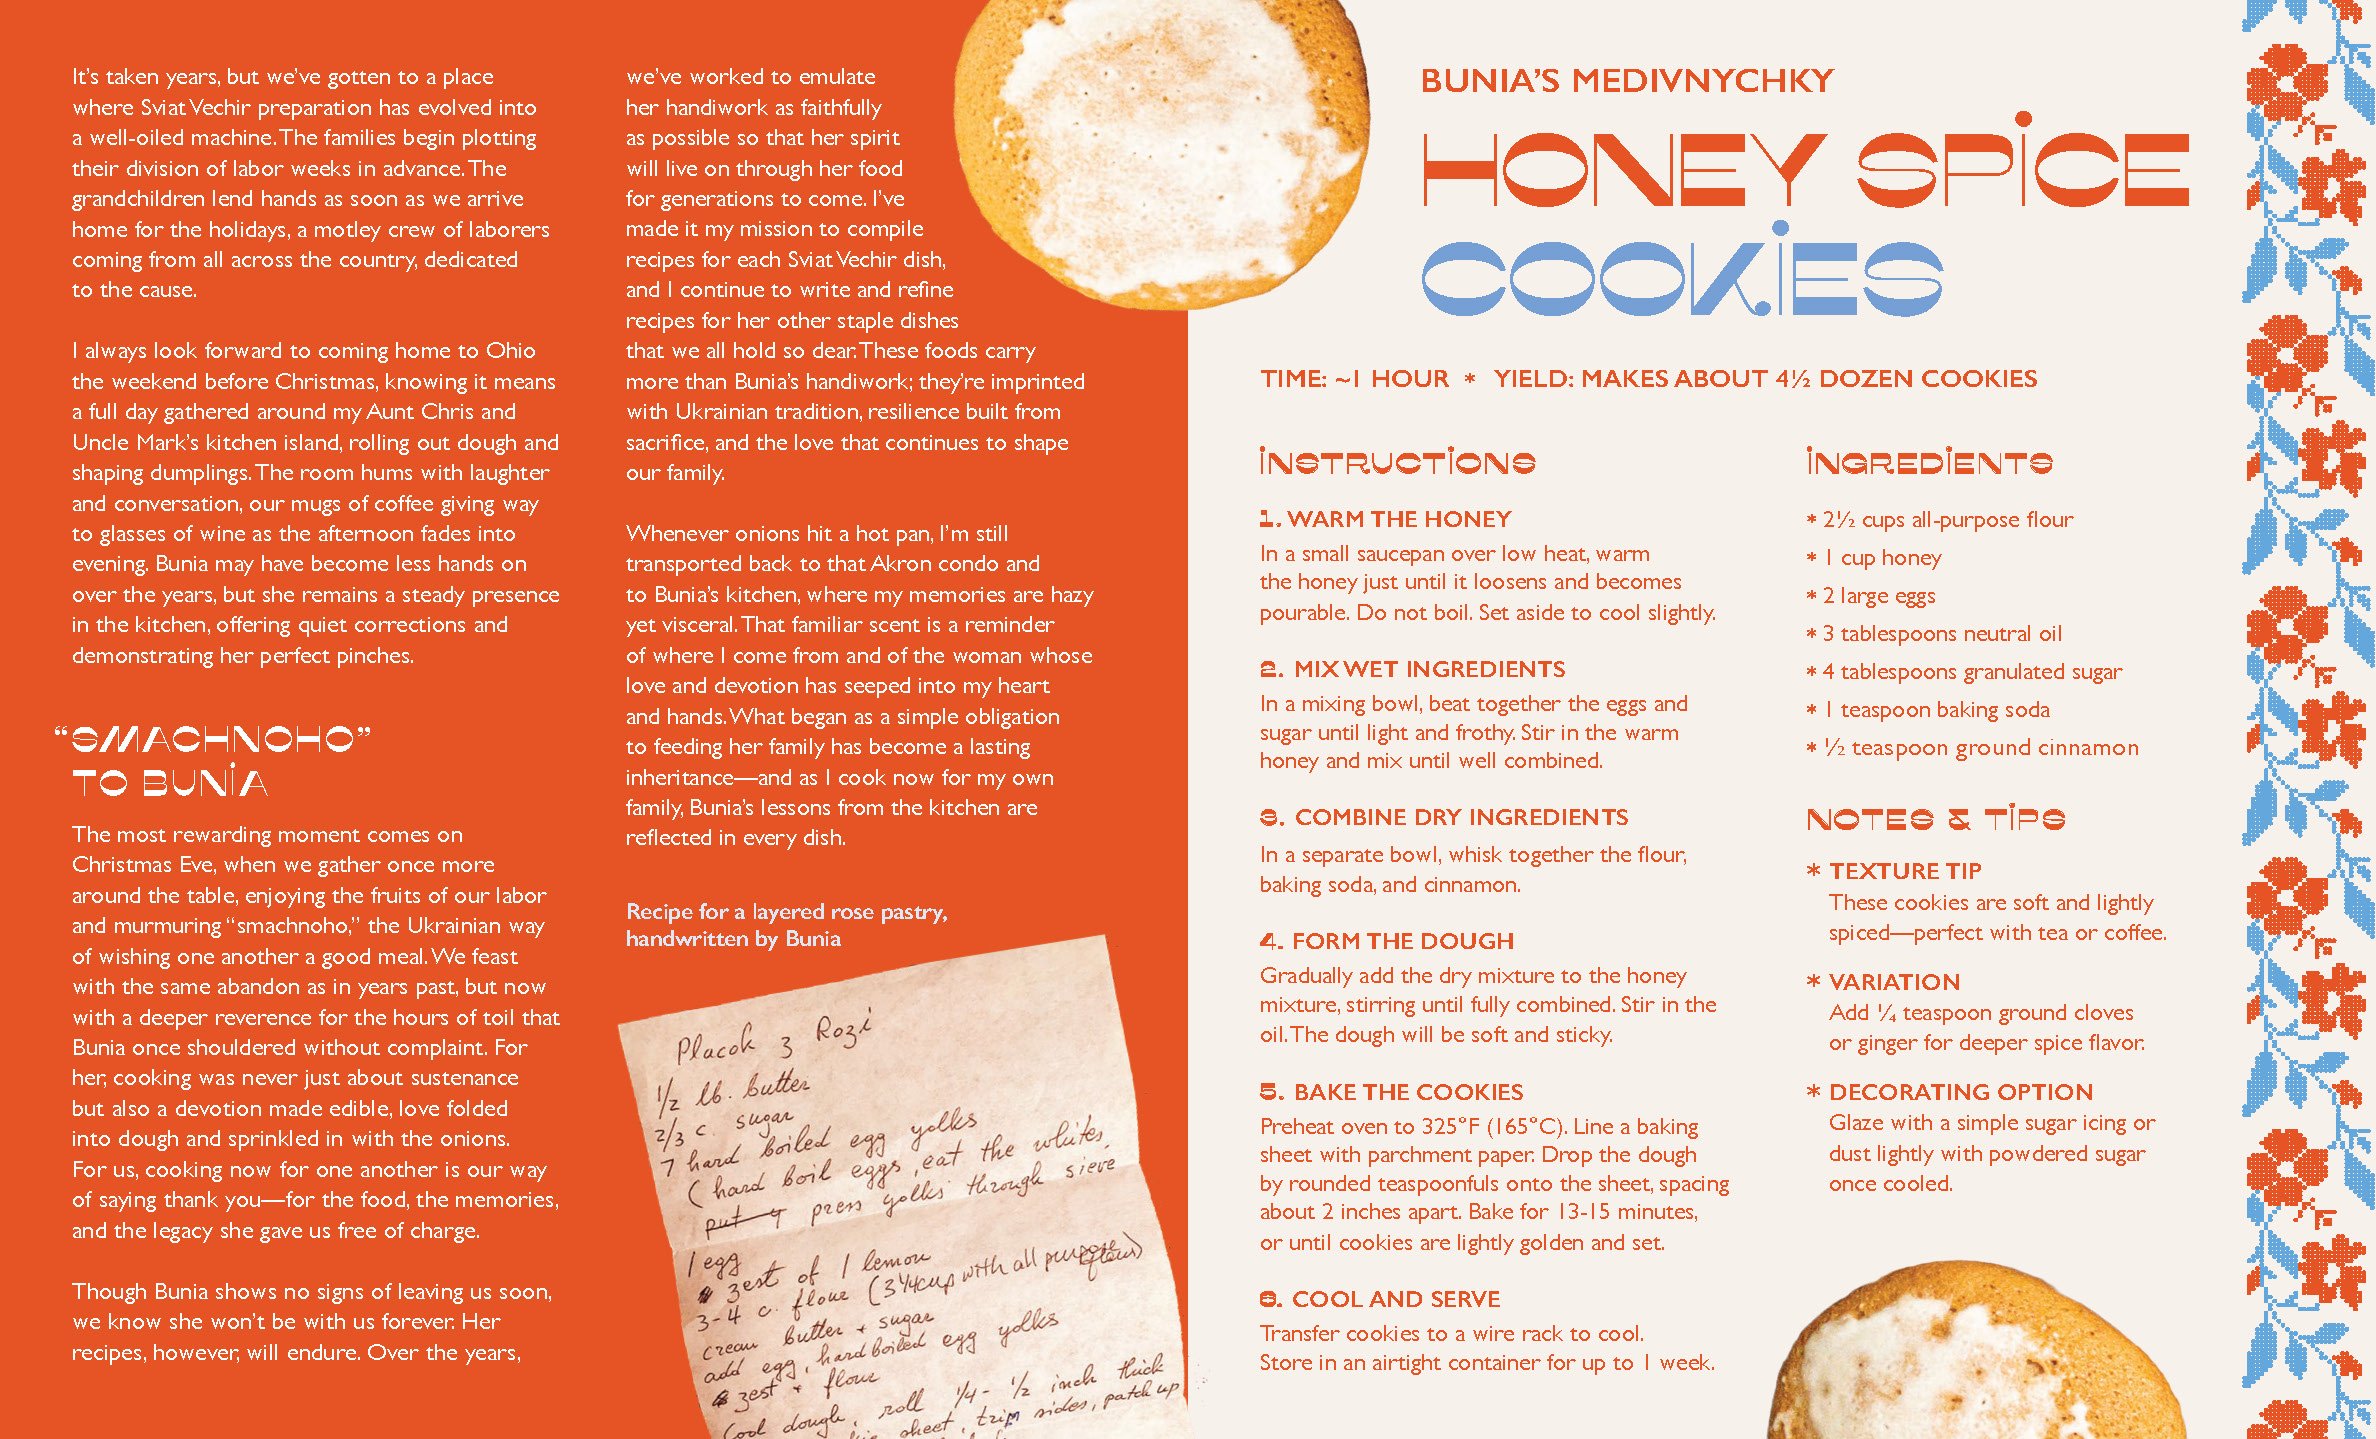 It's taken years, but we've gotten to a place
where Sviat Vechir preparation has evolved into
a well-oiled machine. The families begin plotting
their division of labor weeks in advance. The
grandchildren lend hands as soon as we arrive
home for the holidays, a motley crew of laborers
coming from all across the country, dedicated
to the cause.
I always look forward to coming home to Ohio
the weekend before Christmas, knowing it means
a full day gathered around my Aunt Chris and
Uncle Mark's kitchen island, rolling out dough and
shaping dumplings. The room hums with laughter
and conversation, our mugs of coffee giving way
to glasses of wine as the afternoon fades into
evening. Bunia may have become less hands on
over the years, but she remains a steady presence
in the kitchen, offering quiet corrections and
demonstrating her perfect pinches.
“SMACHNOHO”
TO BUNIA
The most rewarding moment comes on
Christmas Eve, when we gather once more
around the table, enjoying the fruits of our labor
and murmuring “smachnoho,” the Ukrainian way
of wishing one another a good meal. We feast
with the same abandon as in years past, but now
with a deeper reverence for the hours of toil that
Bunia once shouldered without complaint. For
her, cooking was never just about sustenance
but also a devotion made edible, love folded
into dough and sprinkled in with the onions.
For us, cooking now for one another is our way
of saying thank you—for the food, the memories,
and the legacy she gave us free of charge.
Though Bunia shows no signs of leaving us soon,
we know she won't be with us forever. Her
recipes, however, will endure. Over the years,
we've worked to emulate
her handiwork as faithfully
as possible so that her spirit
will live on through her food
for generations to come. I've
made it my mission to compile
recipes for each Sviat Vechir dish,
and I continue to write and refine
recipes for her other staple dishes
that we all hold so dear. These foods carry
more than Bunia's handiwork; they're imprinted
with Ukrainian tradition, resilience built from
sacrifice, and the love that continues to shape
our family.
Whenever onions hit a hot pan, I'm still
transported back to that Akron condo and
to Bunia's kitchen, where my memories are hazy
yet visceral. That familiar scent is a reminder
of where I come from and of the woman whose
love and devotion has seeped into my heart
and hands. What began as a simple obligation
to feeding her family has become a lasting
inheritance—and as I cook now for my own
family, Bunia's lessons from the kitchen are
reflected in every dish.
Recipe for a layered rose pastry,
handwritten by Bunia
Placok z Rozi
1/2 lb. butter
2/3 c. sugar
7 hard boiled egg yolks
(hard boil eggs, eat the whites,
put y press yolks through sieve
1 egg
zest of 1 lemon
3-4 c. flour (3 1/4 cup with all purpose flour)
cream butter + sugar
add egg, hard boiled egg yolks
zest + flour
Cool dough, roll 1/4 - 1/2 inch thick
sheet, trim sides, patch up
BUNIA'S MEDIVNYCHKY
HONEY SPICE
COOKIES
TIME: ~1 HOUR * YIELD: MAKES ABOUT 4½ DOZEN COOKIES
INSTRUCTIONS
1. WARM THE HONEY
In a small saucepan over low heat, warm
the honey just until it loosens and becomes
pourable. Do not boil. Set aside to cool slightly.
2. MIX WET INGREDIENTS
In a mixing bowl, beat together the eggs and
sugar until light and frothy. Stir in the warm
honey and mix until well combined.
3. COMBINE DRY INGREDIENTS
In a separate bowl, whisk together the flour,
baking soda, and cinnamon.
4. FORM THE DOUGH
Gradually add the dry mixture to the honey
mixture, stirring until fully combined. Stir in the
oil. The dough will be soft and sticky.
5. BAKE THE COOKIES
Preheat oven to 325°F (165°C). Line a baking
sheet with parchment paper. Drop the dough
by rounded teaspoonfuls onto the sheet, spacing
about 2 inches apart. Bake for 13-15 minutes,
or until cookies are lightly golden and set.
6. COOL AND SERVE
Transfer cookies to a wire rack to cool.
Store in an airtight container for up to 1 week.
INGREDIENTS
* 2½ cups all-purpose flour
* 1 cup honey
* 2 large eggs
* 3 tablespoons neutral oil
* 4 tablespoons granulated sugar
* 1 teaspoon baking soda
* ½ teaspoon ground cinnamon
NOTES & TIPS
* TEXTURE TIP
These cookies are soft and lightly
spiced—perfect with tea or coffee.
* VARIATION
Add ¼ teaspoon ground cloves
or ginger for deeper spice flavor.
* DECORATING OPTION
Glaze with a simple sugar icing or
dust lightly with powdered sugar
once cooled.